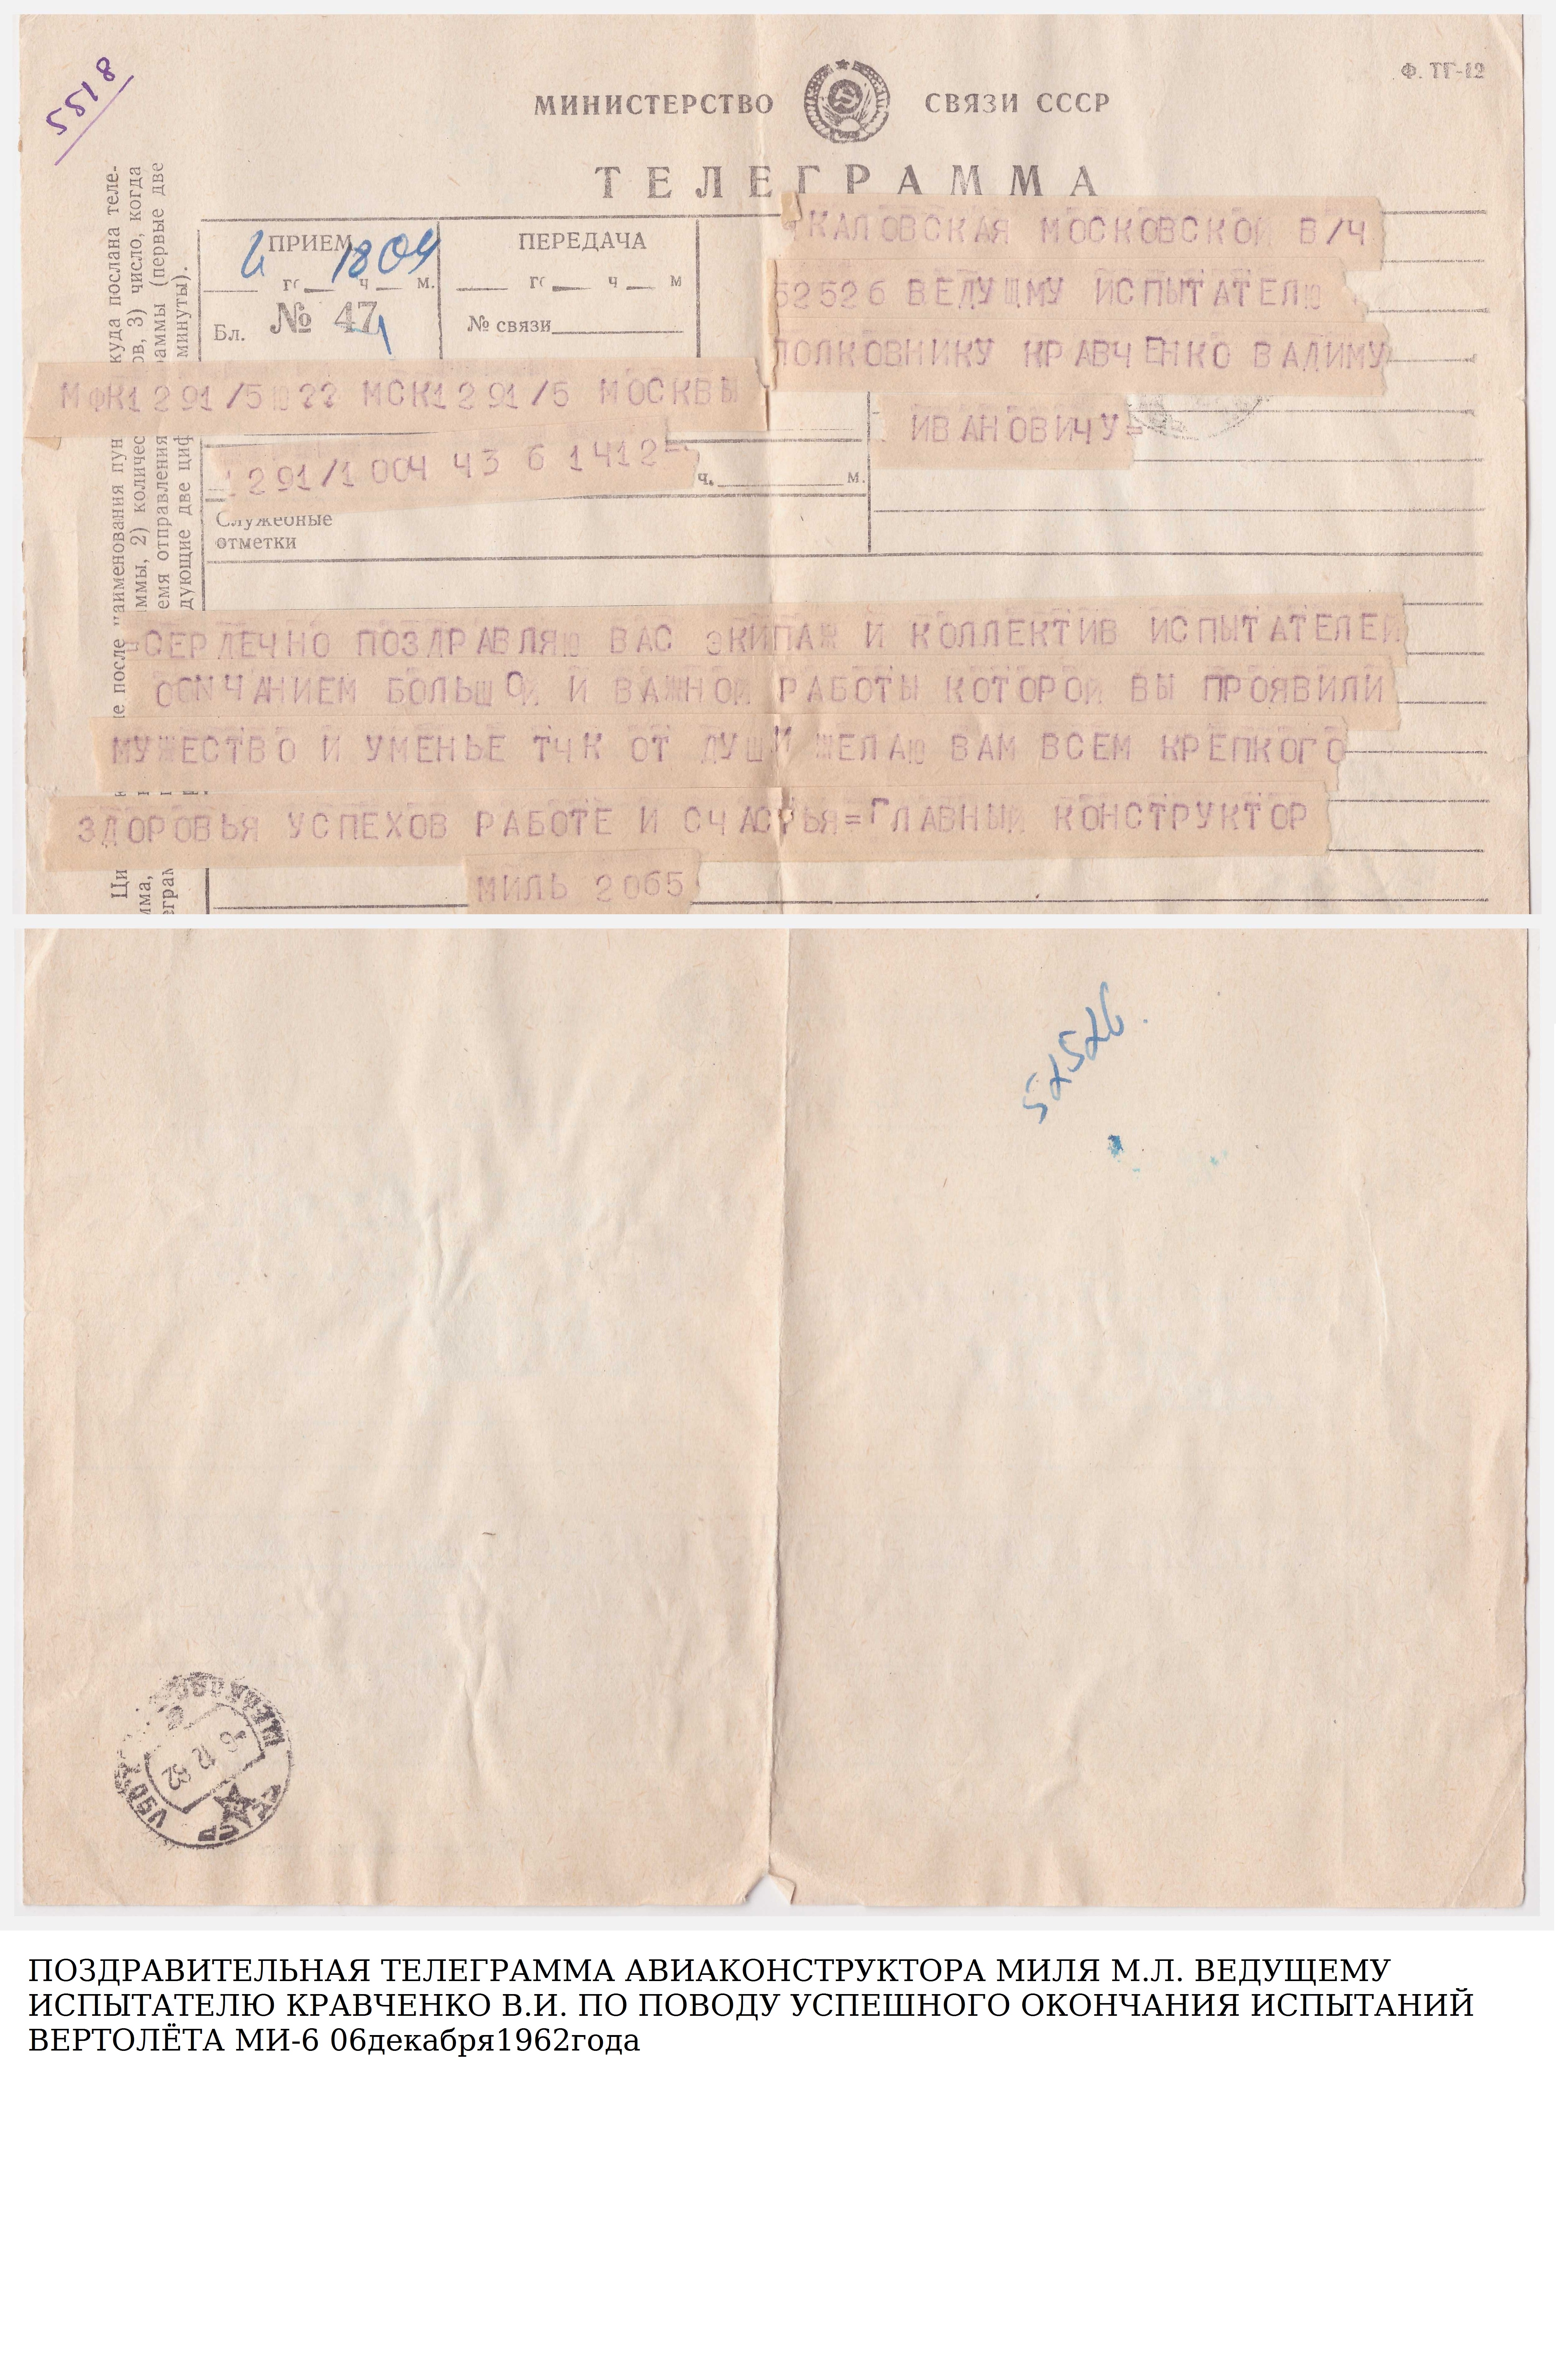 5518
Ф. ТГ-12
МИНИСТЕРСТВО СВЯЗИ СССР
ТЕЛЕГРАММА
ПРИЕМ
18 04
ч м.
Бл. № 47
ПЕРЕДАЧА
ч м
№ связи
КАЛОВСКАЯ МОСКОВСКОЙ В/Ч
52526 ВЕДУЩМУ ИСПЫТАТЕЛЮ
ПОЛКОВНИКУ КРАВЧЕНКО ВАДИМУ
ИВАНОВИЧУ=
МФК1291/5Ю?? МСК1291/5 МОСКВЫ
1291/1 004 43 6 1412=
ч. м.
Служебные
отметки
=СЕРДЕЧНО ПОЗДРАВЛЯЮ ВАС ЭКИПАЖ И КОЛЛЕКТИВ ИСПЫТАТЕЛЕЙ
ЧАНИЕМ БОЛЬШОЙ И ВАЖНОЙ РАБОТЫ КОТОРОЙ ВЫ ПРОЯВИЛИ
МУЖЕСТВО И УМЕНЬЕ ТЧК ОТ ДУШИ ЖЕЛАЮ ВАМ ВСЕМ КРЕПКОГО
ЗДОРОВЬЯ УСПЕХОВ РАБОТЕ И СЧАСТЬЯ=ГЛАВНЫЙ КОНСТРУКТОР
МИЛЬ 2065
куда послана теле-
после наименования пун
ммы, 2) количес ов, 3) число, когда
емя отправления раммы (первые две
дующие две циф минуты).
52526.
6 12 62
ПОЗДРАВИТЕЛЬНАЯ ТЕЛЕГРАММА АВИАКОНСТРУКТОРА МИЛЯ М.Л. ВЕДУЩЕМУ
ИСПЫТАТЕЛЮ КРАВЧЕНКО В.И. ПО ПОВОДУ УСПЕШНОГО ОКОНЧАНИЯ ИСПЫТАНИЙ
ВЕРТОЛЁТА МИ-6 06декабря1962года